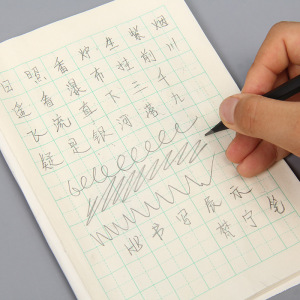 日照香炉生紫烟
遥看瀑布挂前川
飞流直下三千
疑是银河落九
书写展示
梵宁笔